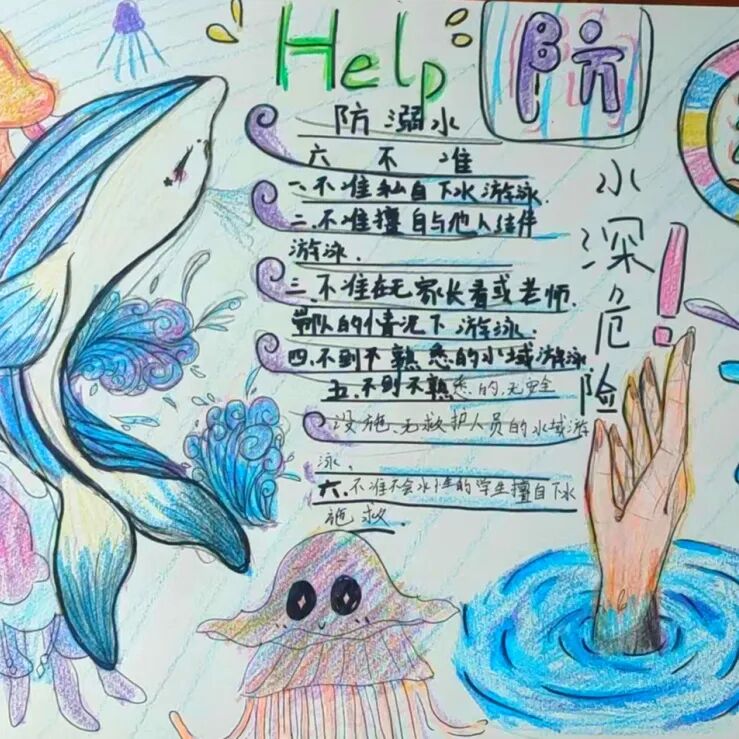 Help
防
防溺水
六不准
一、不准私自下水游泳.
二.不准擅自与他人结伴
游泳.
三.不准在无家长看或老师
带队的情况下游泳.
四.不到不熟悉的水域游泳
五.不到不熟悉的、无安全
设施、无救护人员的水域游
泳、
六.不准不会水性的学生擅自下水
施救.
水深危险!